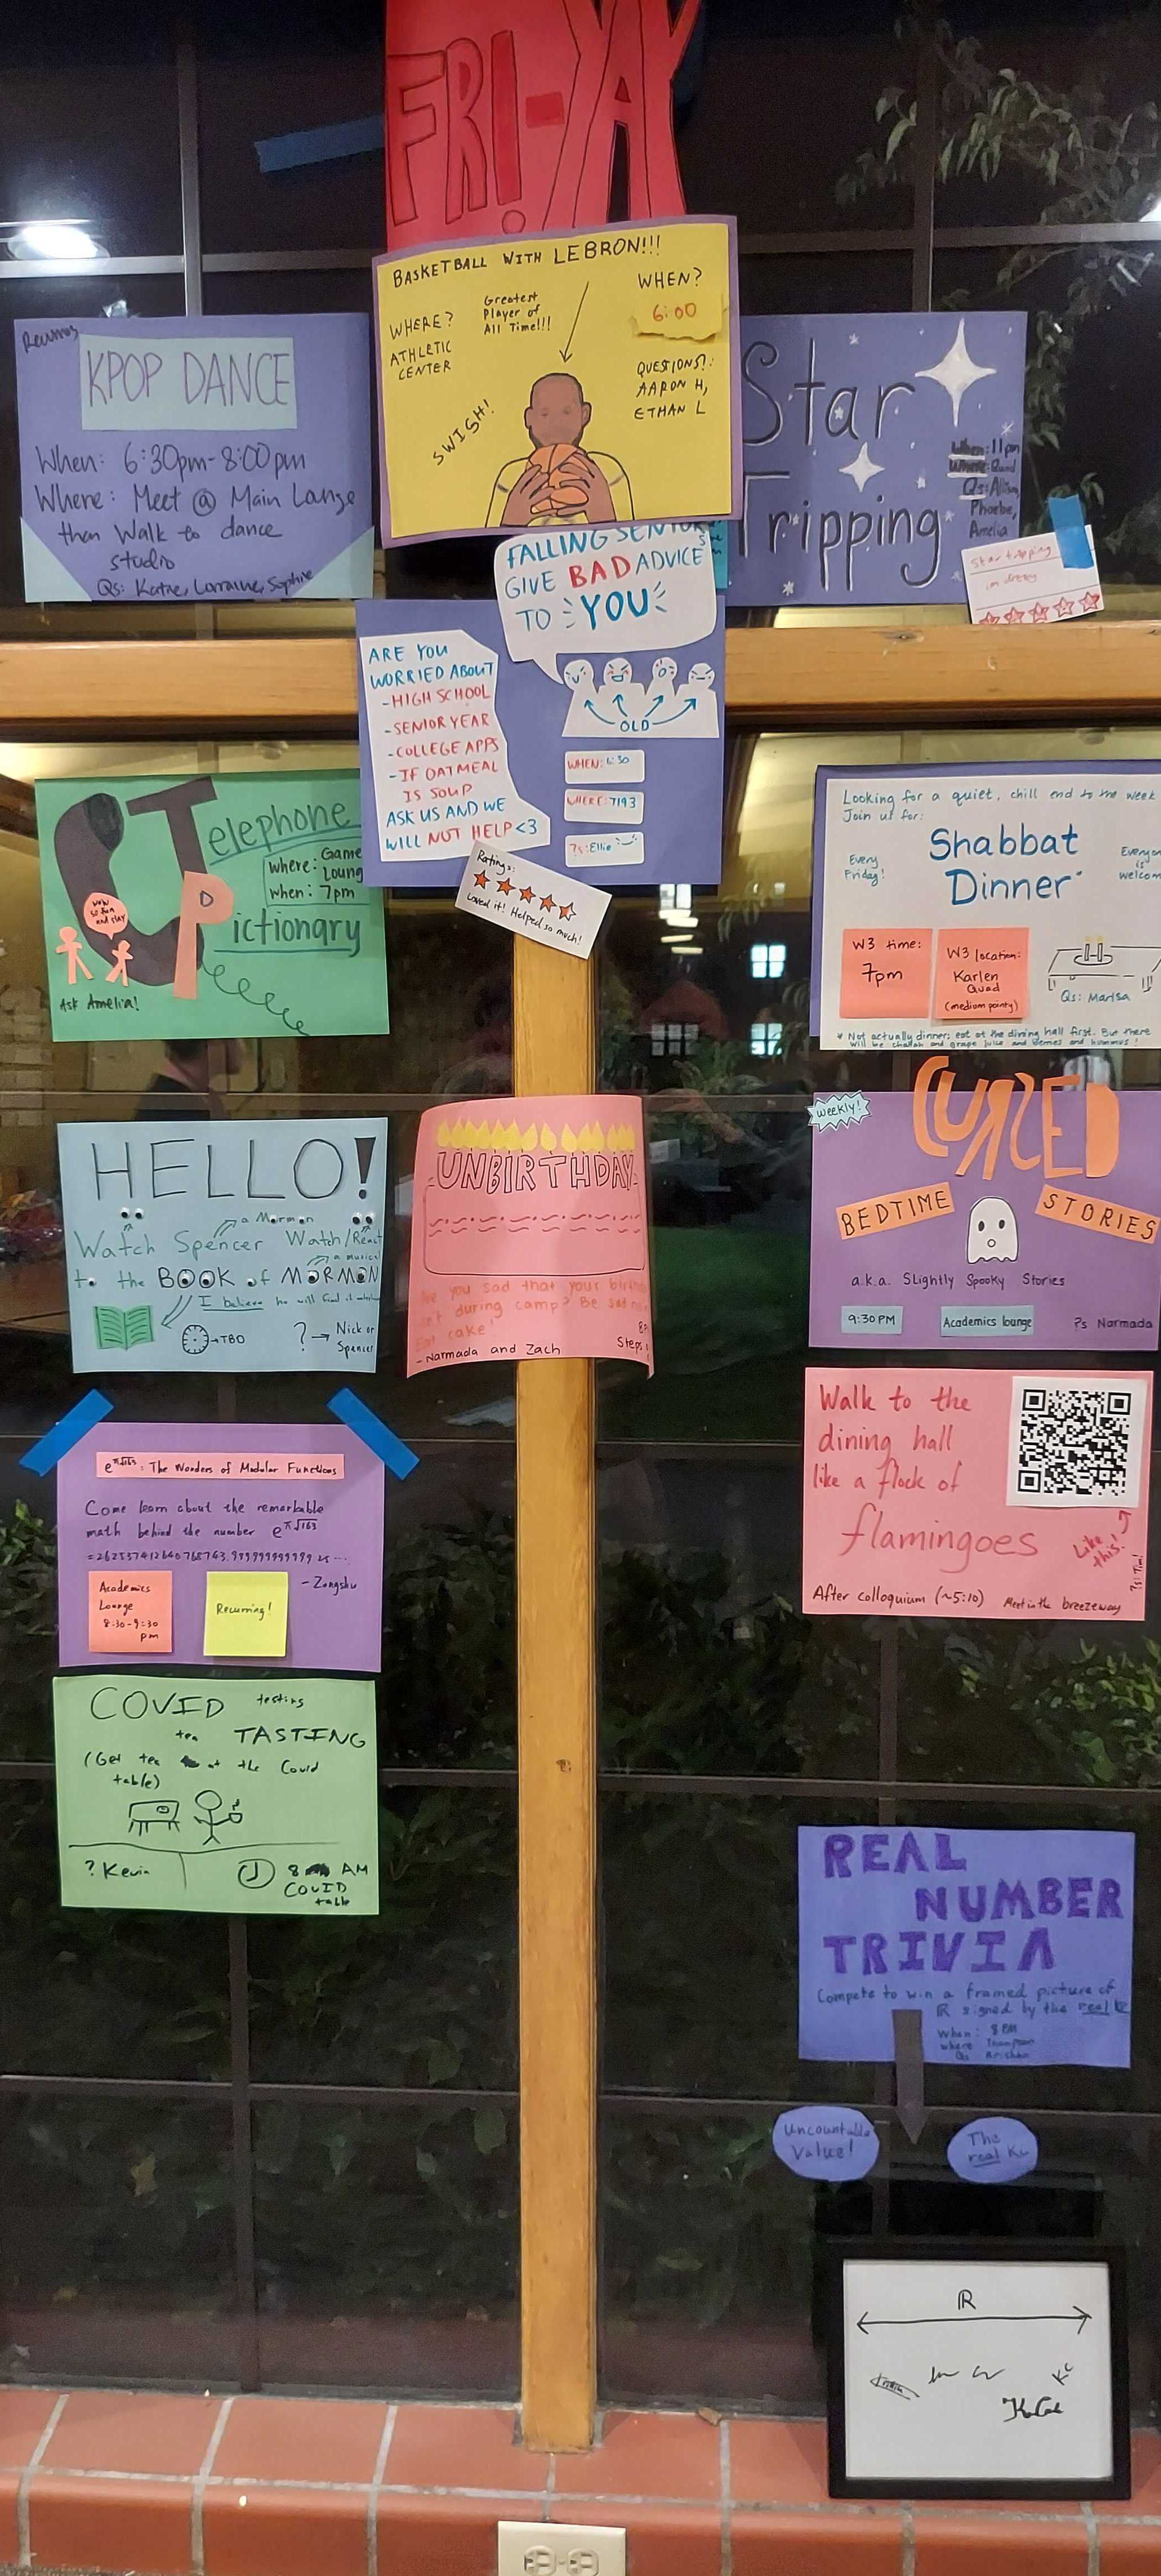 FRI-YAY
BASKETBALL WITH LEBRON!!!
WHERE?
ATHLETIC
CENTER
Greatest
Player of
All Time!!!
WHEN?
6:00
QUESTIONS?:
AARON H,
ETHAN L
SWISH!
KPOP DANCE
When: 6:30pm-8:00pm
Where: Meet @ Main Lounge
then Walk to dance
studio
Qs: Katie, Lorraine, Sophie
Star
Tripping
When: 11pm
Where: Quad
Qs: Allison,
Phoebe,
Amelia
star tripping
im dizzy
FALLING SENIORS
GIVE BAD ADVICE
TO YOU
ARE YOU
WORRIED ABOUT
-HIGH SCHOOL
-SENIOR YEAR
-COLLEGE APPS
-IF OATMEAL
IS SOUP
ASK US AND WE
WILL NOT HELP <3
OLD
WHEN: 6:30
WHERE: 7193
?s: Ellie
Ratings:
Loved it! Helped so much!
Telephone
Pictionary
where: Game
Loung
when: 7pm
wow
so fun
and slay
Ask Amelia!
Looking for a quiet, chill end to the week
Join us for:
Shabbat
Dinner*
Every
Friday!
Everyon
is
welcom
W3 time:
7pm
W3 location:
Karlen
Quad
(medium pointy)
Qs: Marisa
* Not actually dinner; eat at the dining hall first. But there
will be challah and grape juice and berries and hummus!
HELLO!
a Mormon
Watch Spencer Watch/React
a musical
to the BOOK of MORMON
I believe he will find it
TBD
? → Nick or
Spencer
UNBIRTHDAY
you sad that your birth
during camp? Be sad
cake!
-Narmada and Zach
Steps
weekly!
CURSED
BEDTIME
STORIES
a.k.a. Slightly Spooky Stories
9:30 PM
Academics lounge
?s Narmada
e^π√163: The Wonders of Modular Functions
Come learn about the remarkable
math behind the number e^π√163
=262537412640768743.99999999999925...
-Zongshu
Academics
Lounge
8:30-9:30
pm
Recurring!
Walk to the
dining hall
like a flock of
flamingoes
Like
this!
?s: Tim!
After colloquium (~5:10)
Meet in the breezeway
COVID testing
tea TASTING
(Get tea at the Covid
table)
? Kevin
8 AM
COVID
table
REAL
NUMBER
TRIVIA
Compete to win a framed picture of
ℝ signed by the real
When: 8PM
where Thompson
Qs Krishan
Uncountable
Value!
The
real KC
ℝ
KC